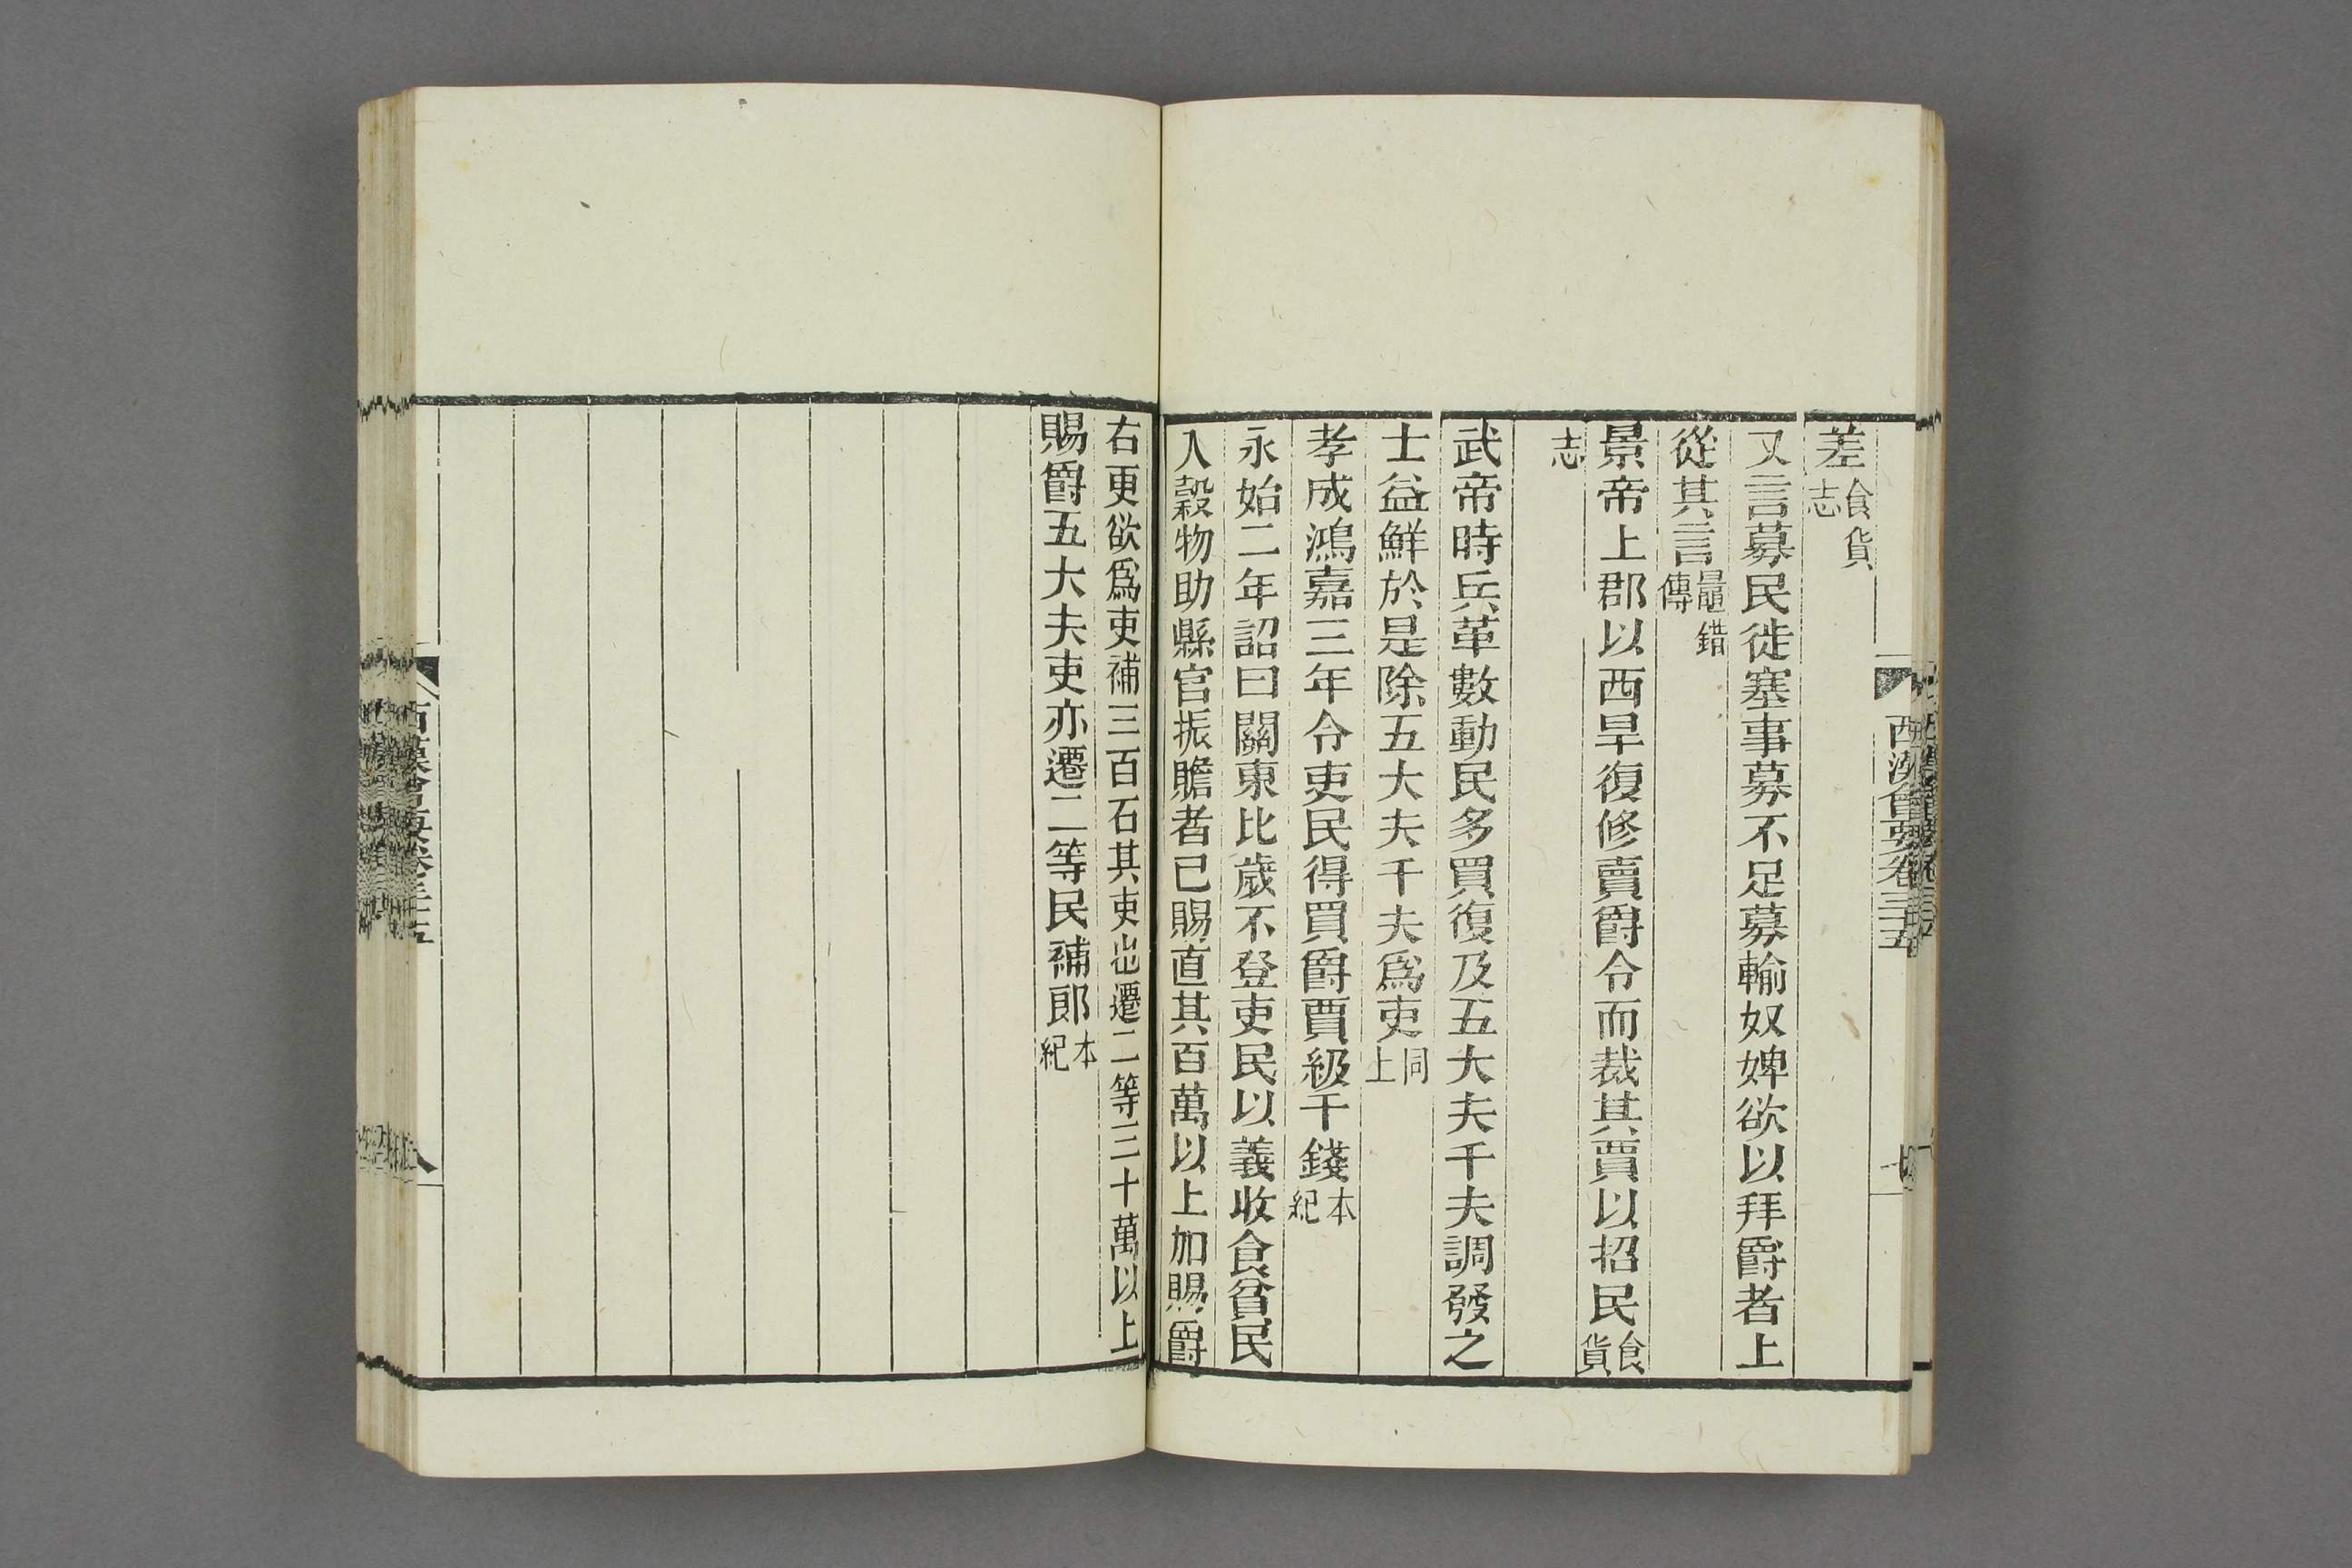 西漢會要卷三十五
七
差食貨志
又言募民徙塞事募不足募輸奴婢欲以拜爵者上
從其言鼂錯傳
景帝上郡以西旱復修賣爵令而裁其賈以招民食貨
志
武帝時兵革數動民多買復及五大夫千夫調發之
士益鮮於是除五大夫千夫爲吏同上
孝成鴻嘉三年令吏民得買爵賈級千錢本紀
永始二年詔曰關東比歲不登吏民以義收食貧民
入穀物助縣官振贍者已賜直其百萬以上加賜爵
右更欲爲吏補三百石其吏也遷二等三十萬以上
賜爵五大夫吏亦遷二等民補郎本紀
西漢會要卷三十五
八